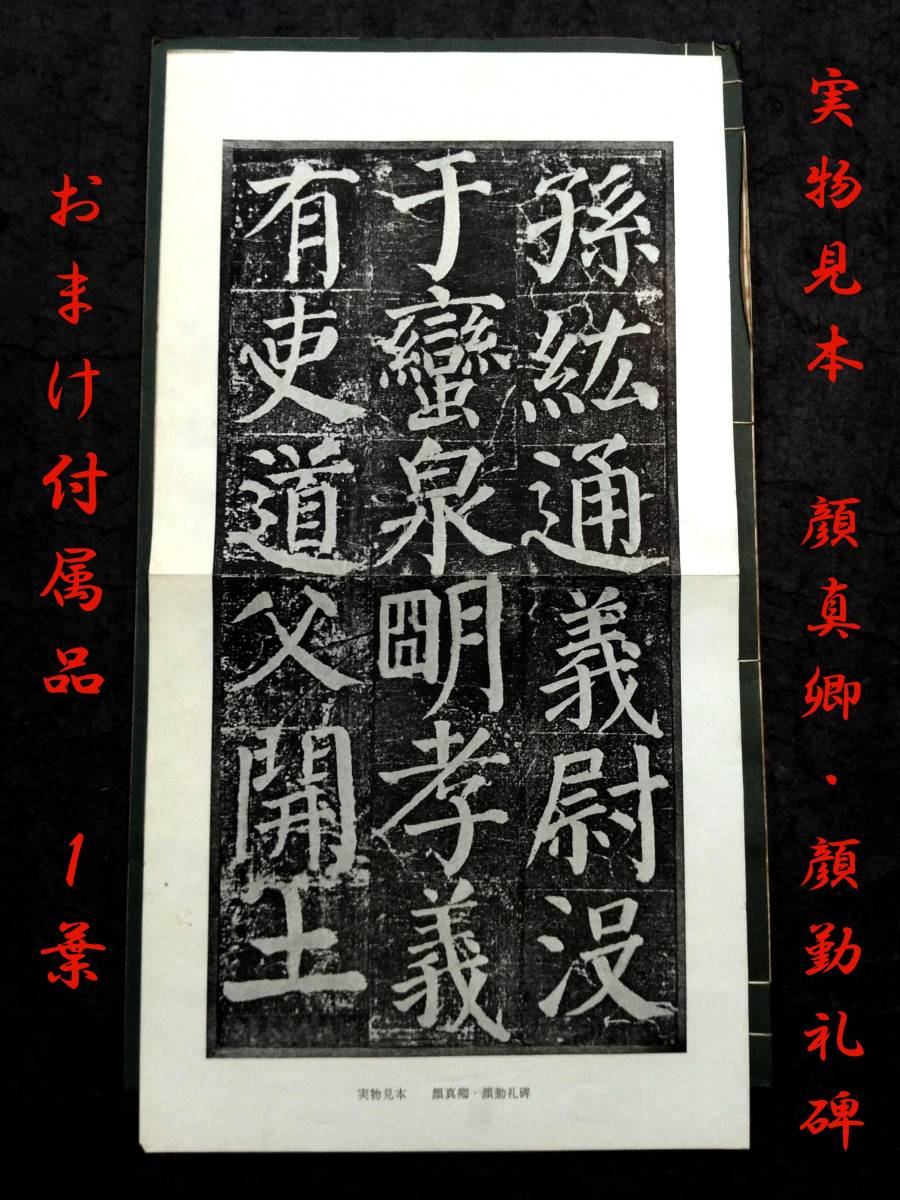 実物見本 顔真卿・顔勤礼碑
孫紘通義尉没
于蠻泉明孝義
有吏道父開土
実物見本 顔真卿・顔勤礼碑
おまけ付属品 1葉